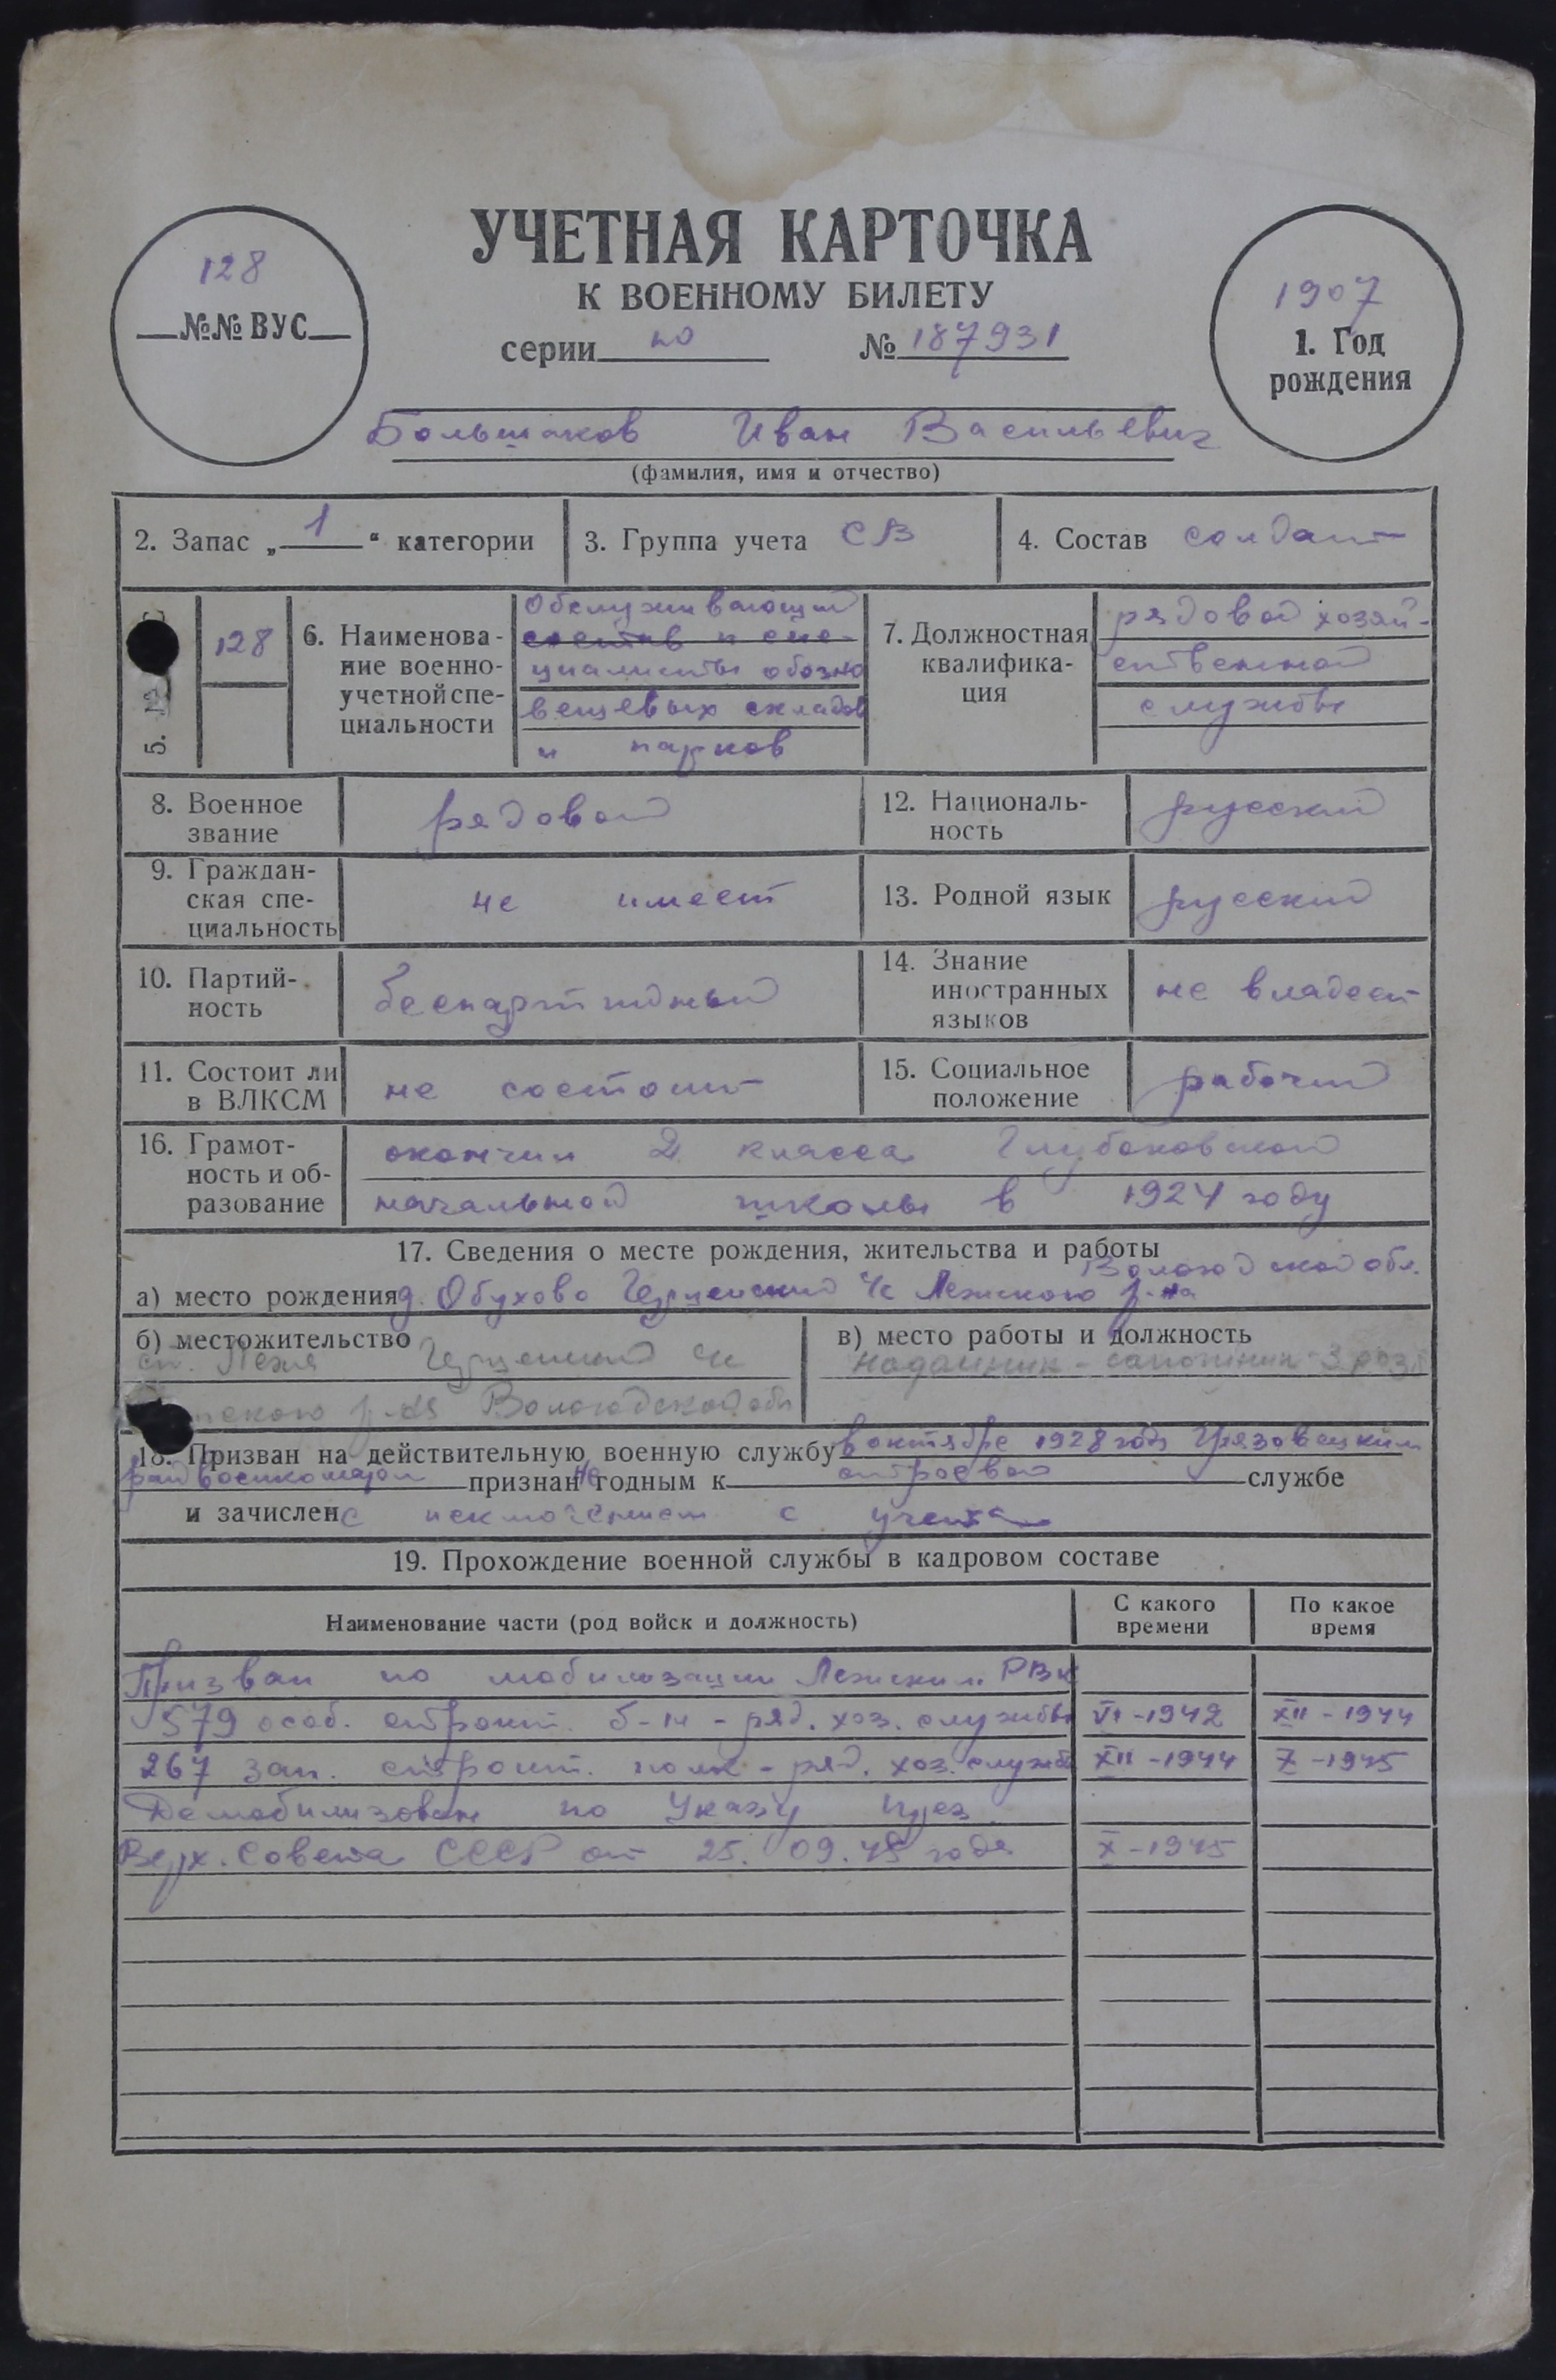 128
№№ ВУС
УЧЕТНАЯ КАРТОЧКА
К ВОЕННОМУ БИЛЕТУ
серии № 187931
1907
1. Год
рождения
Большаков Иван Васильевич
(фамилия, имя и отчество)
2. Запас „1“ категории
3. Группа учета СВ
4. Состав солдат
5. №
128
6. Наименова-
ние военно-
учетной спе-
циальности
Обслуживающий
состав и спе-
циалисты обозно
вещевых складов
и парков
7. Должностная
квалифика-
ция
рядовой хозяй-
ственной
службы
8. Военное
звание
рядовой
12. Националь-
ность
русский
9. Граждан-
ская спе-
циальность
не имеет
13. Родной язык
русский
10. Партий-
ность
беспартийный
14. Знание
иностранных
языков
не владеет
11. Состоит ли
в ВЛКСМ
не состоит
15. Социальное
положение
рабочий
16. Грамот-
ность и об-
разование
окончил 2 класса Глубоковской
начальной школы в 1924 году
17. Сведения о месте рождения, жительства и работы
Вологодской обл.
а) место рождения д. Обухово с/с Лежского р-на
б) местожительство
ст. Лежа с/с
р-на Вологодской обл
в) место работы и должность
18. Призван на действительную военную службу в октябре 1928 года Грязовецким
райвоенкоматом признан не годным к строевой службе
и зачислен с исключением с учета
19. Прохождение военной службы в кадровом составе
Наименование части (род войск и должность)
С какого
времени
По какое
время
Призван по мобилизации Лежским РВК
579 особ. строит. б-н - ряд. хоз. службы VI-1942 XII-1944
267 зап. строит. полк - ряд. хоз. службы XII-1944 X-1945
Демобилизован по Указу През.
Верх. Совета СССР от 25.09.45 года X-1945